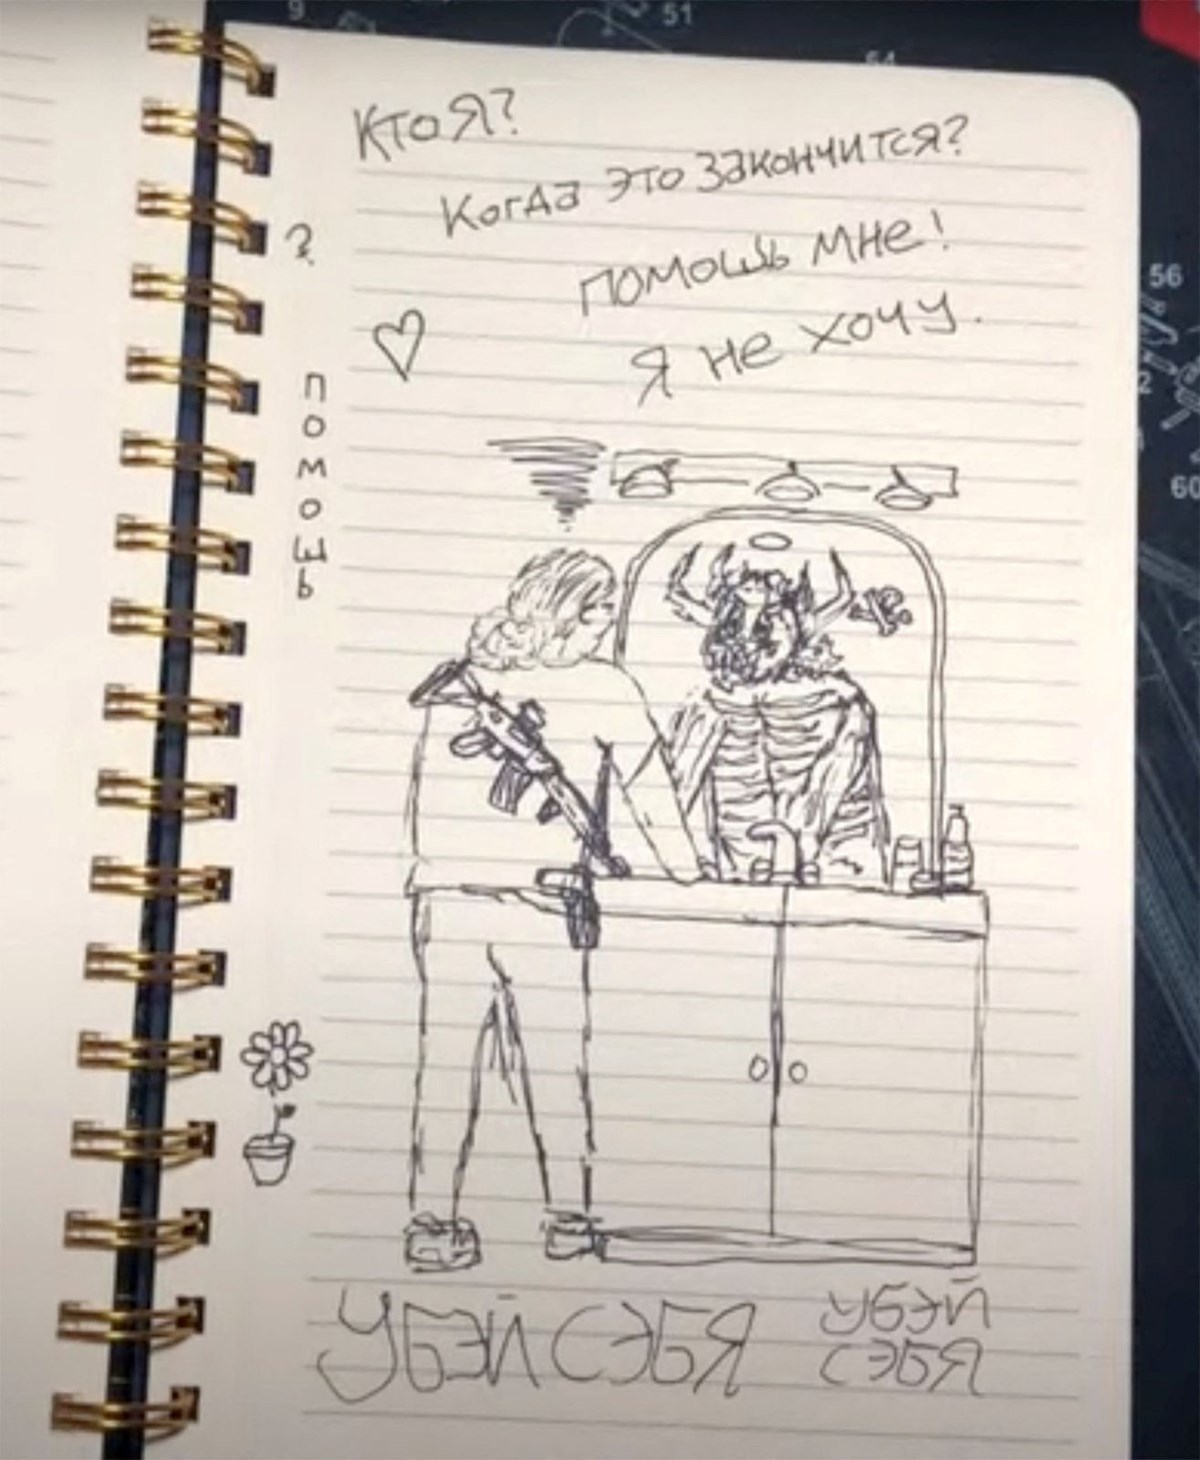 9
51
54
Кто я?
Когда это закончится?
помошь мне!
Я не хочу.
?
помошь
56
2
60
УБЭЙ СЭБЯ
УБЭЙ
СЭБЯ